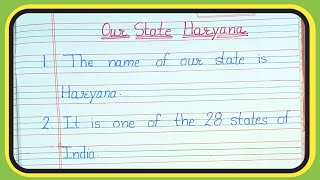 Our State Haryana
1. The name of our state is
Haryana.
2. It is one of the 28 states of
India.